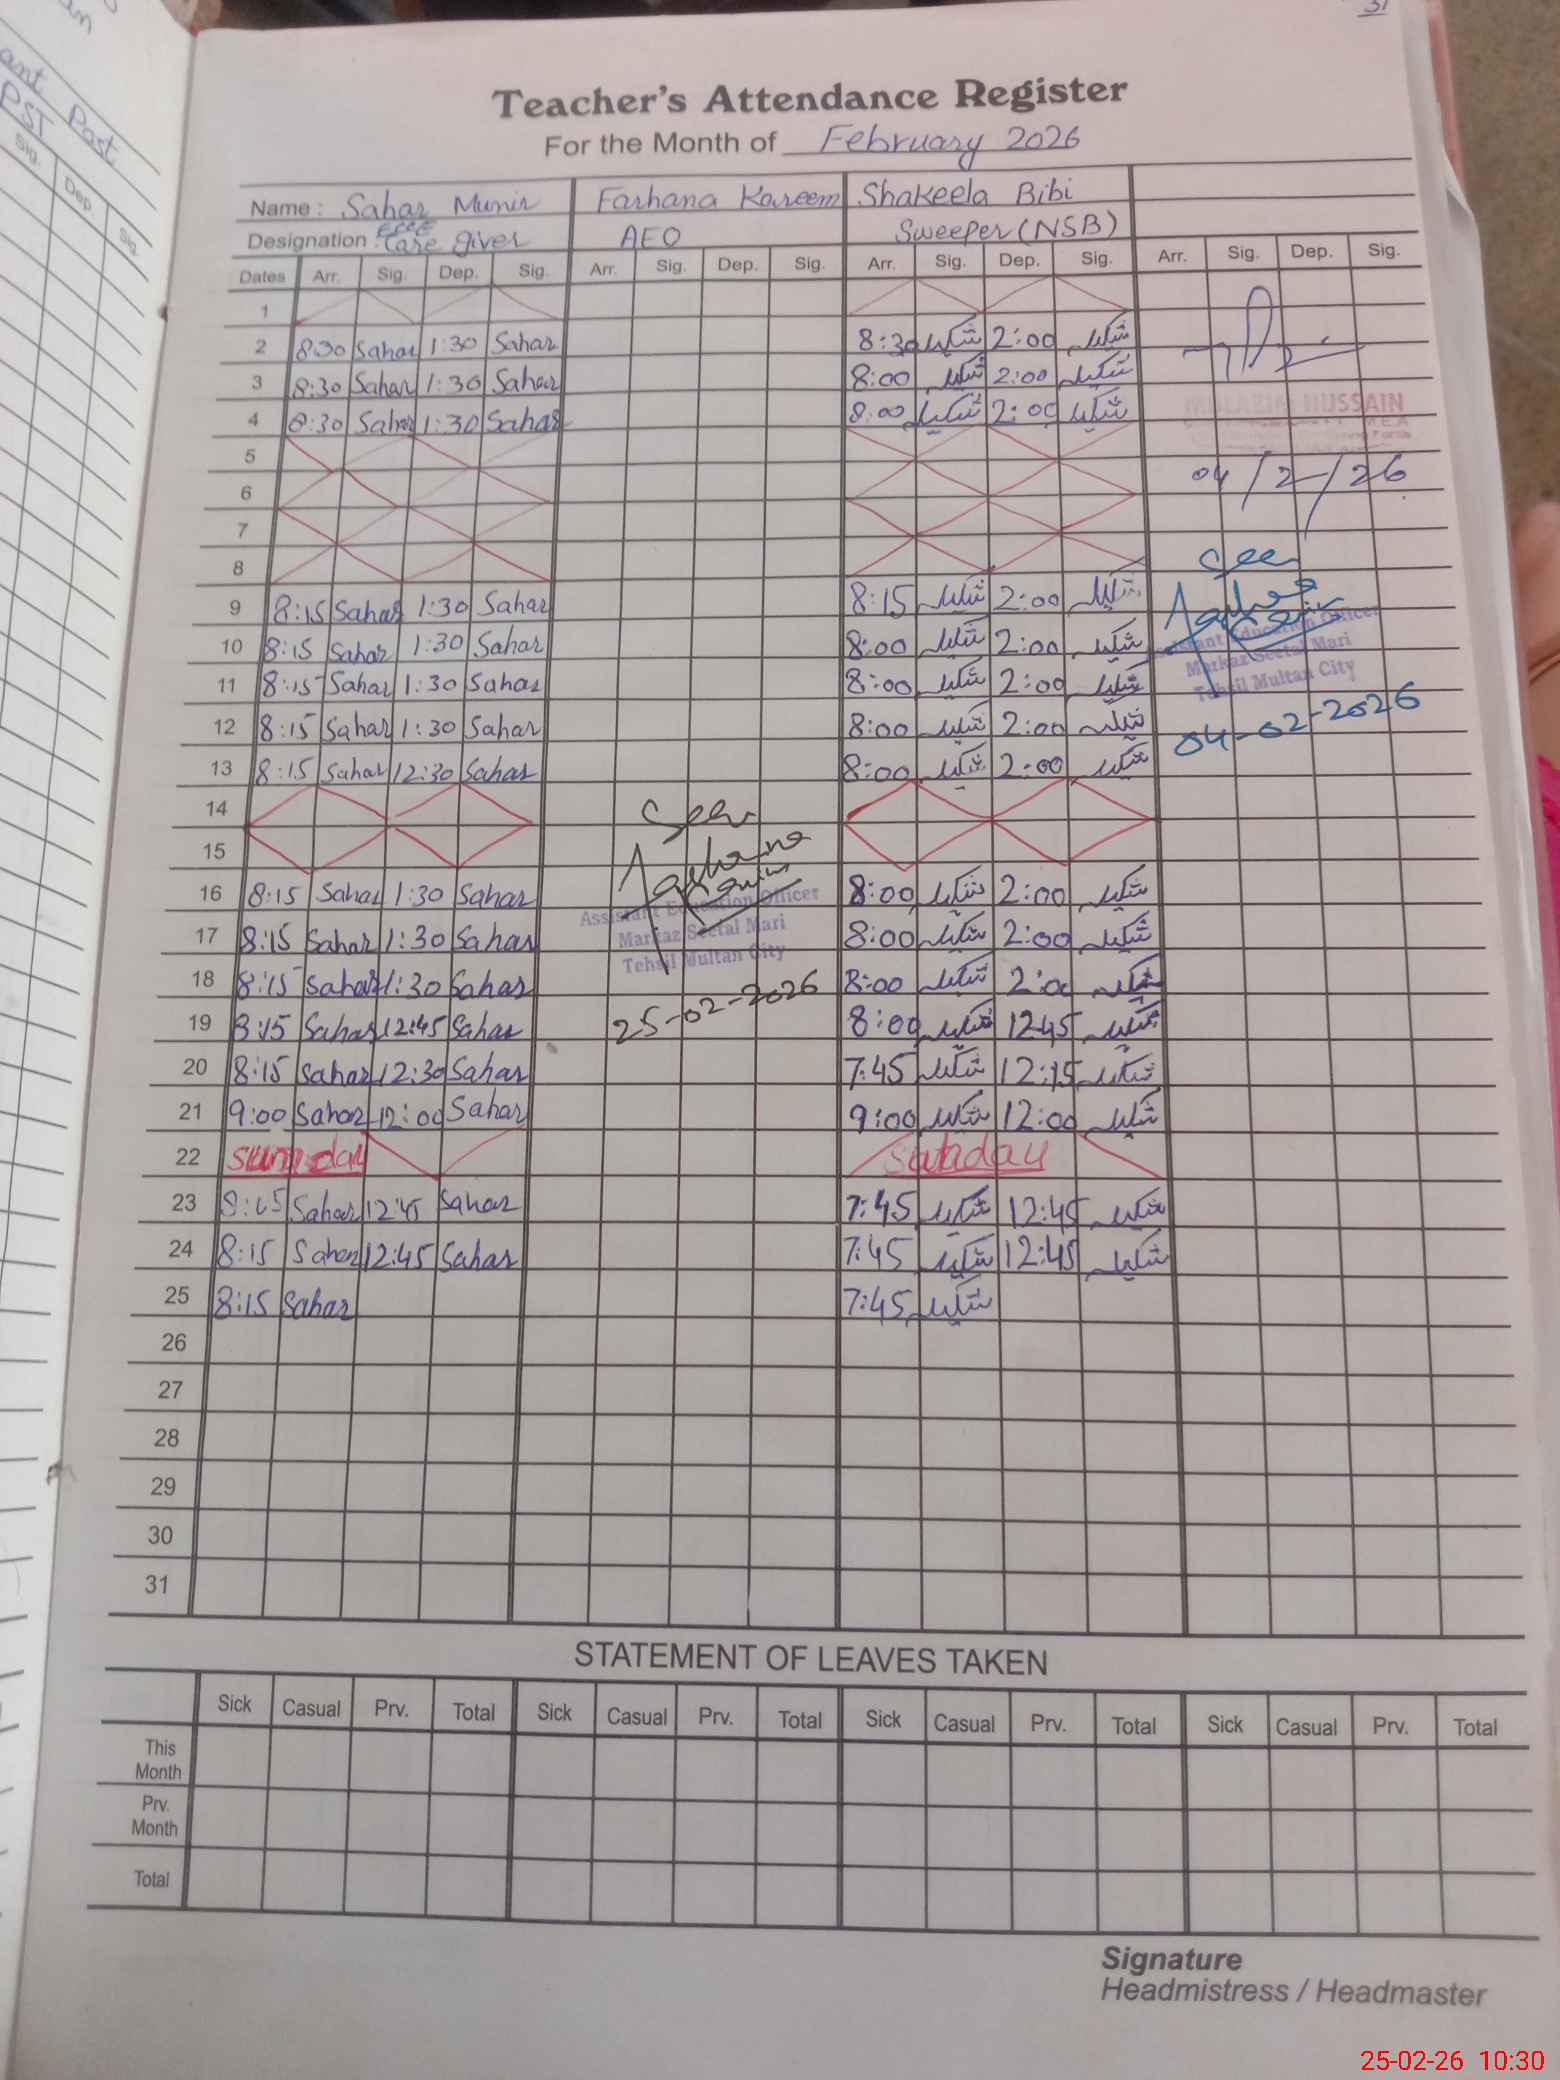 31
Teacher's Attendance Register
For the Month of February 2026
Name : Sahar Munir Farhana Kareem Shakeela Bibi
Designation : ECCE Care giver AEO Sweeper (NSB)
Dates Arr. Sig. Dep. Sig. Arr. Sig. Dep. Sig. Arr. Sig. Dep. Sig. Arr. Sig. Dep. Sig.
1
2 8:30 Sahar 1:30 Sahar 8:30 شکیلہ 2:00 شکیلہ
3 8:30 Sahar 1:30 Sahar 8:00 شکیلہ 2:00 شکیلہ
4 8:30 Sahar 1:30 Sahar 8:00 شکیلہ 2:00 شکیلہ HUSSAIN
5
6 04/2/26
7
8 See
9 8:15 Sahar 1:30 Sahar 8:15 شکیلہ 2:00 شکیلہ
Assistant Education Officer
10 8:15 Sahar 1:30 Sahar 8:00 شکیلہ 2:00 شکیلہ Markaz Seetal Mari
11 8:15 Sahar 1:30 Sahar 8:00 شکیلہ 2:00 شکیلہ Tehsil Multan City
12 8:15 Sahar 1:30 Sahar 8:00 شکیلہ 2:00 شکیلہ 04-02-2026
13 8:15 Sahar 12:30 Sahar 8:00 شکیلہ 2:00 شکیلہ
14 Seen
15 Farhana Karim
16 8:15 Sahar 1:30 Sahar Assistant Education Officer 8:00 شکیلہ 2:00 شکیلہ
17 8:15 Sahar 1:30 Sahar Markaz Seetal Mari 8:00 شکیلہ 2:00 شکیلہ
Tehsil Multan City
18 8:15 Sahar 1:30 Sahar 8:00 شکیلہ 2:00 شکیلہ
19 8:15 Sahar 12:45 Sahar 25-02-2026 8:00 شکیلہ 12:45 شکیلہ
20 8:15 Sahar 12:30 Sahar 7:45 شکیلہ 12:15 شکیلہ
21 9:00 Sahar 12:00 Sahar 9:00 شکیلہ 12:00 شکیلہ
22 sunday sunday
23 8:15 Sahar 12:45 Sahar 7:45 شکیلہ 12:45 شکیلہ
24 8:15 Sahar 12:45 Sahar 7:45 شکیلہ 12:45 شکیلہ
25 8:15 Sahar 7:45 شکیلہ
26
27
28
29
30
31
STATEMENT OF LEAVES TAKEN
Sick Casual Prv. Total Sick Casual Prv. Total Sick Casual Prv. Total Sick Casual Prv. Total
This Month
Prv. Month
Total
Signature
Headmistress / Headmaster
25-02-26 10:30